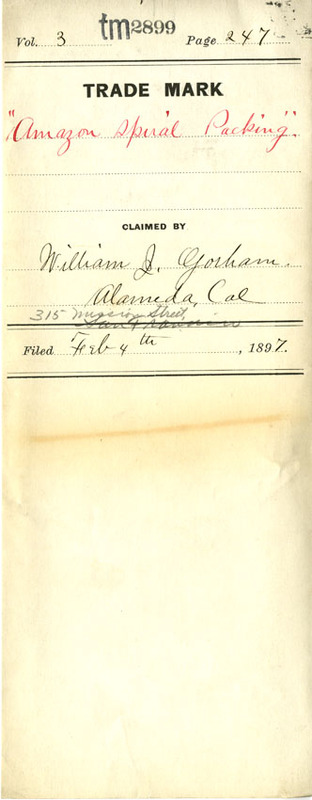 Vol. 3 tm2899 Page 247
TRADE MARK
"Amazon Spiral Packing".
CLAIMED BY
William J. Gorham.
Alameda, Cal
315 Mission Street,
San Francisco
Filed Feb 4th, 1897.